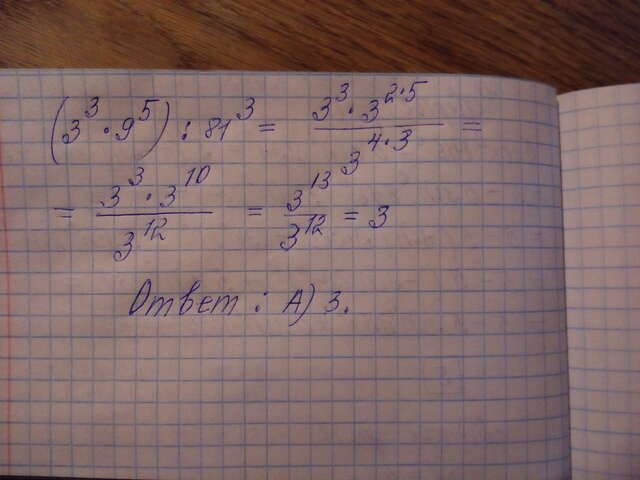 (3³ · 9⁵) : 81³ = (3³ · 3²·⁵)/(3⁴·³) =
= (3³ · 3¹⁰)/3¹² = 3¹³/3¹² = 3
Ответ : А) 3.